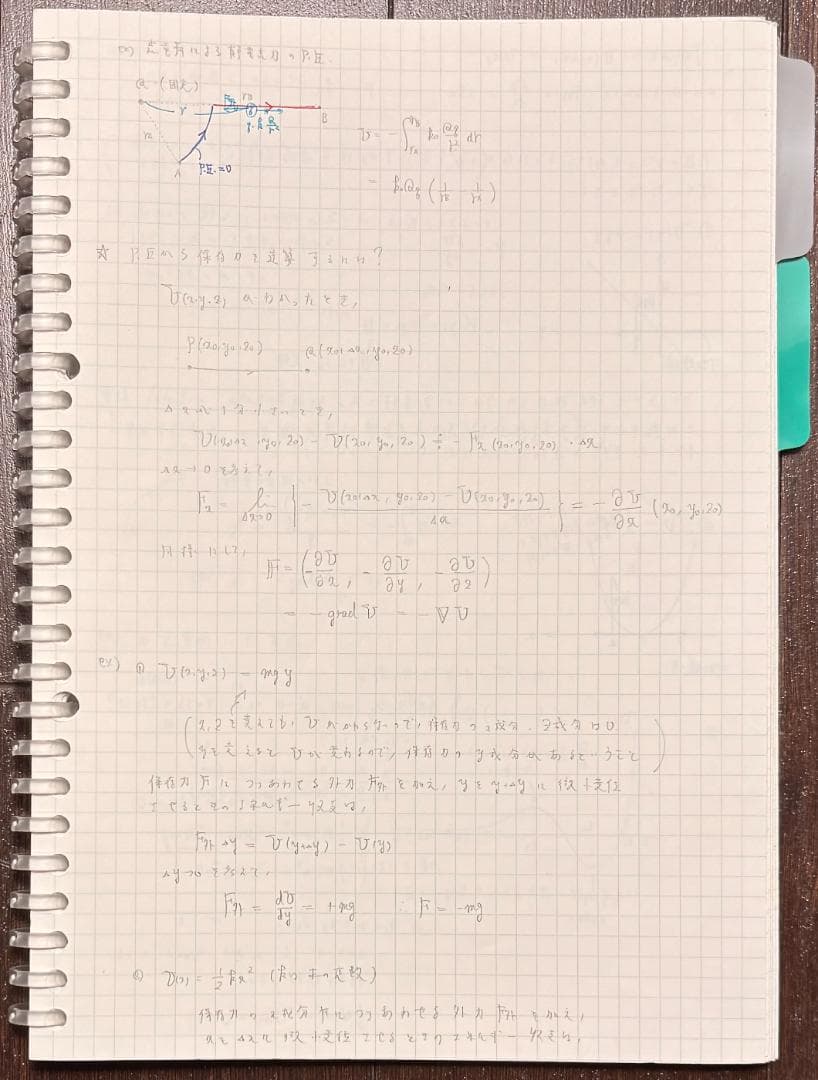 (3) 点電荷による静電気力のP.E.
Q (固定)
r
r_A
F外
r_B
q
q・k₀Q/r²
B
A
P.E.=0
U = -∫_{r_A}^{r_B} k₀ Qq/r² dr
= k₀Qq (1/r_B - 1/r_A)
☆ P.E.から保存力を逆算するには?
U(x,y,z) がわかったとき,
P(x₀,y₀,z₀) Q(x₀+Δx,y₀,z₀)
Δxが十分小さいとき,
U(x₀+Δx,y₀,z₀) - U(x₀,y₀,z₀) ≒ -Fx(x₀,y₀,z₀)・Δx
Δx→0を考えて,
Fx = lim_{Δx→0} { - (U(x₀+Δx, y₀,z₀) - U(x₀,y₀,z₀))/Δx } = - ∂U/∂x (x₀,y₀,z₀)
同様にして, F = (-∂U/∂x, -∂U/∂y, -∂U/∂z)
= -grad U = -∇U
ex) ① U(x,y,z) = mgy
(x,zを変えても, Uがかわらないので, 保存力のx成分, z成分は0
yを変えると Uが変わるので, 保存力のy成分があるということ)
保存力Fに つりあわせる外力 F外を加え, yをy+Δyに微小変位
させるとき エネルギー収支は,
F外Δy = U(y+Δy) - U(y)
Δy→0を考えて,
F外 = dU/dy = +mg ∴ F = -mg
② U(x) = 1/2 kx² (kは 正の定数)
保存力のx成分Fに つりあわせる外力 F外を加え,
xをΔxに微小変位させるときのエネルギー収支は,